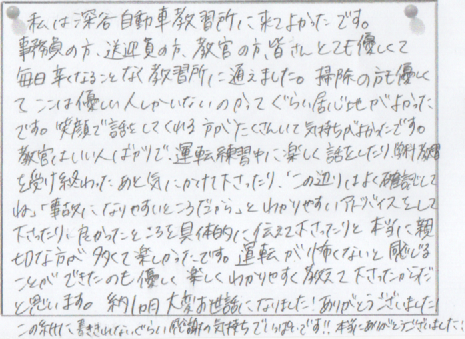 私は深谷自動車教習所に来てよかったです。
事務員の方、送迎員の方、教官の方、皆さんとても優しくて
毎日辛くなることなく教習所に通えました。掃除の方も優しく
てここは優しい人しかいないのかってぐらい居心地がよかった
です。笑顔で話をしてくれる方がたくさんいて気持ちがよかったです。
教官はいい人ばかりで、運転練習中に楽しく話をしたり、学科教習
を受け終わったあと気にかけて下さったり、「この辺りはよく確認して
ね」「事故になりやすいところだから」とわかりやすいアドバイスをして
下さったり、良かったところを具体的に伝えて下さったりと本当に親
切な方が多くて楽しかったです。運転が怖くないと感じる
ことができたのも優しく楽しくわかりやすく教えて下さったからだ
と思います。約1カ月大変お世話になりました!ありがとうございました!
この紙に書ききれないぐらい感謝の気持ちでいっぱいです!!本当にありがとうございました!